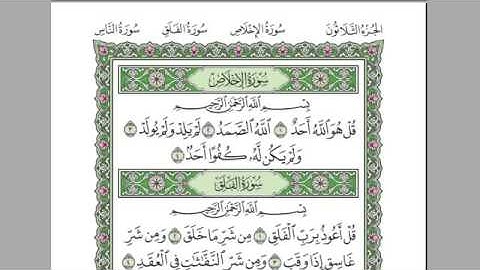 الجزء الثلاثون سورة الإخلاص سورة الفلق سورة الناس
سُورَةُ الإِخْلَاصِ
بِسْمِ ٱللَّهِ ٱلرَّحْمَٰنِ ٱلرَّحِيمِ
قُلْ هُوَ ٱللَّهُ أَحَدٌ ١ ٱللَّهُ ٱلصَّمَدُ ٢ لَمْ يَلِدْ وَلَمْ يُولَدْ ٣
وَلَمْ يَكُن لَّهُۥ كُفُوًا أَحَدٌۢ ٤
سُورَةُ الفَلَقِ
بِسْمِ ٱللَّهِ ٱلرَّحْمَٰنِ ٱلرَّحِيمِ
قُلْ أَعُوذُ بِرَبِّ ٱلْفَلَقِ ١ مِن شَرِّ مَا خَلَقَ ٢ وَمِن شَرِّ
غَاسِقٍ إِذَا وَقَبَ ٣ وَمِن شَرِّ ٱلنَّفَّٰثَٰتِ فِي ٱلْعُقَدِ ٤